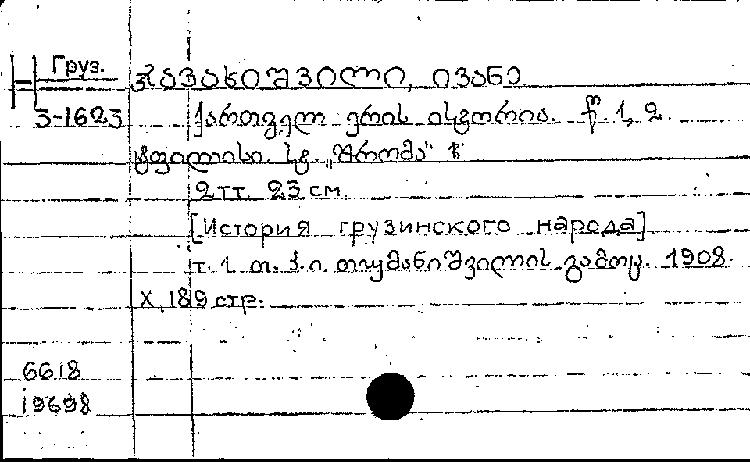 Груз. ჯავახიშვილი, ივანე
3-1623 ქართველ ერის ისტორია. წ. 1, 2.
ტფილისი. სტ. „შრომა“
2 тт. 23 см.
[История грузинского народа]
т. 1. თ. ქ. ი. თიუმანიშვილის გამოც. 1908.
X, 189 стр.
6618
19698